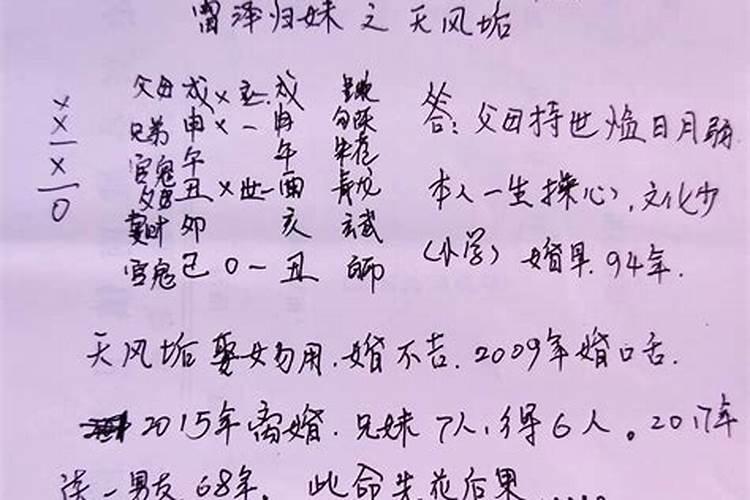 雷泽归妹之天风垢
父母戌 x 应 戌
兄弟 申 x 一 申
官鬼 午 午 朱雀
x 丑 x 世一酉 青龙
x 妻财 卯 亥 玄武
x 官鬼 巳 0 一 丑
0
答:父母持世 日月弱
本人一生操心,文化少
(小学) 婚早.94年.
天风垢 娶女勿用.婚不吉.2009年婚口舌.
2015年离婚.兄妹7人,得6人。2017年
一男友.68年. 此命先花后果